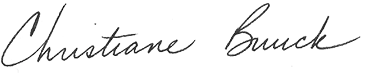 Christiane Buuck